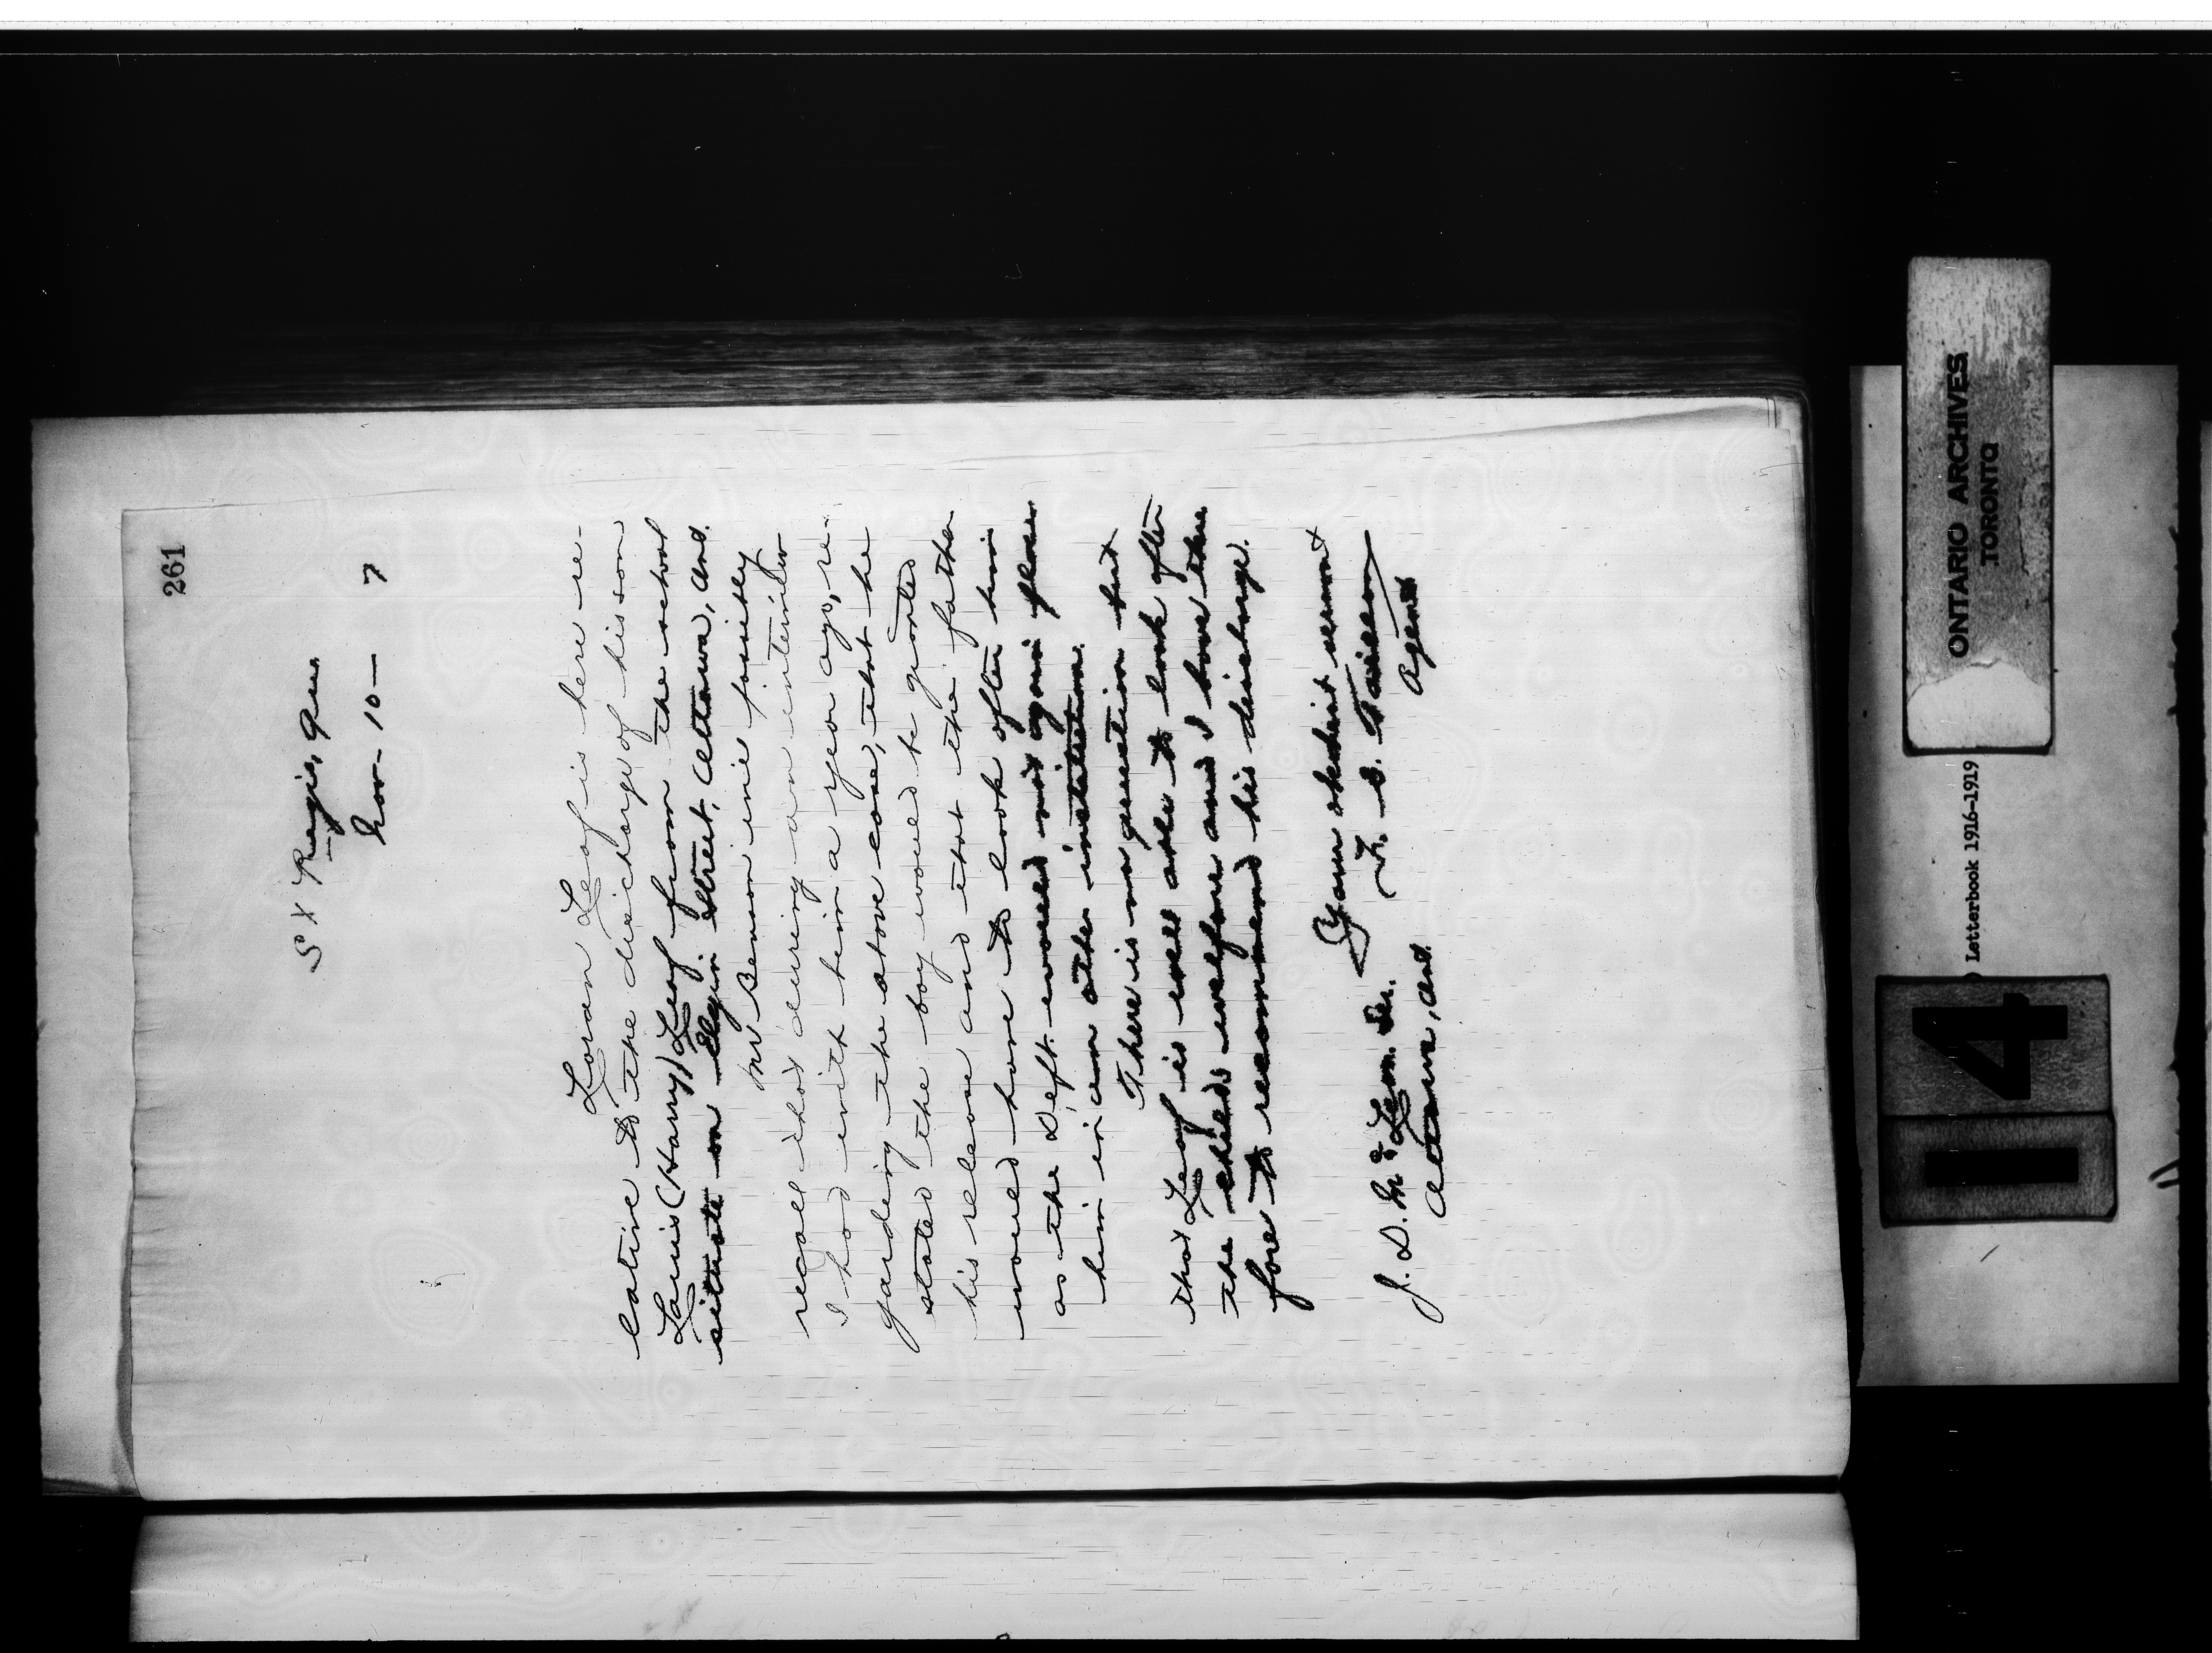 261
St Regis, Que.
Nov-10- 7
Loran Leaf is here re-
lative to the discharge of his son
Louis (Harry) Leaf from the school
situate on Elgin Street, Ottawa, Ont.
Mr Benson will possibly
recall that during an interview
I had with him a year ago, re-
garding the above case, that he
stated the boy would be granted
his release and that the father
would have to look after him
as the Dept. would not again place
him in an other institution.
There is no question but
that Leaf is well able to look after
the childs welfare and I have there
fore to recommend his discharge.
Your obedient servant
F. E. Taillon
Agent
J. D. McLean Sr.
Ottawa, Ont.
ONTARIO ARCHIVES
TORONTO
Letterbook 1916-1919
14